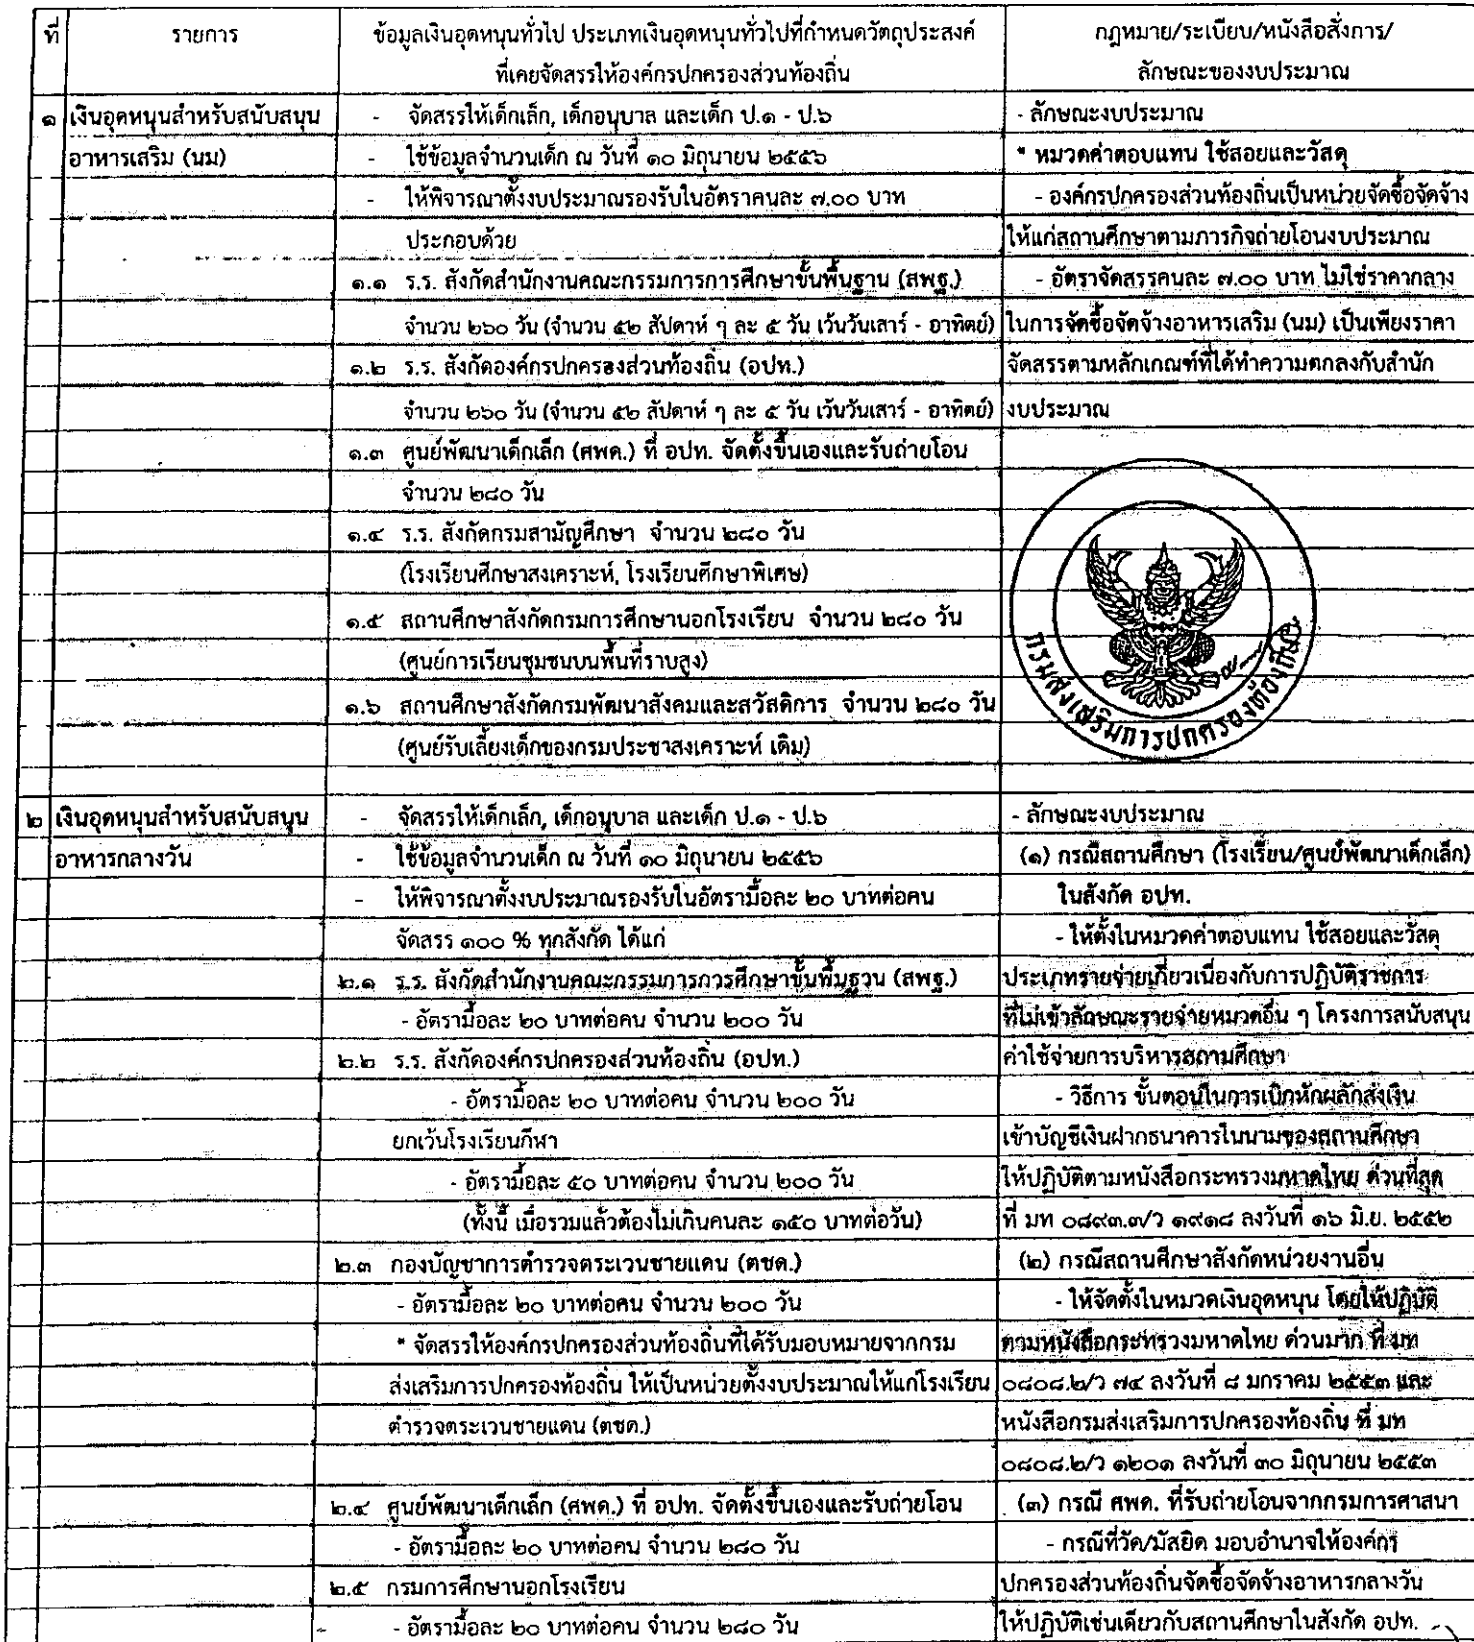 ที่ รายการ ข้อมูลเงินอุดหนุนทั่วไป ประเภทเงินอุดหนุนทั่วไปที่กำหนดวัตถุประสงค์ กฎหมาย/ระเบียบ/หนังสือสั่งการ/
ที่เคยจัดสรรให้องค์กรปกครองส่วนท้องถิ่น ลักษณะของงบประมาณ
๑ เงินอุดหนุนสำหรับสนับสนุน - จัดสรรให้เด็กเล็ก, เด็กอนุบาล และเด็ก ป.๑ - ป.๖ - ลักษณะงบประมาณ
อาหารเสริม (นม) - ใช้ข้อมูลจำนวนเด็ก ณ วันที่ ๑๐ มิถุนายน ๒๕๕๖ * หมวดค่าตอบแทน ใช้สอยและวัสดุ
- ให้พิจารณาตั้งงบประมาณรองรับในอัตราคนละ ๗.๐๐ บาท - องค์กรปกครองส่วนท้องถิ่นเป็นหน่วยจัดซื้อจัดจ้าง
ประกอบด้วย ให้แก่สถานศึกษาตามภารกิจถ่ายโอนงบประมาณ
๑.๑ ร.ร. สังกัดสำนักงานคณะกรรมการการศึกษาขั้นพื้นฐาน (สพฐ.) - อัตราจัดสรรคนละ ๗.๐๐ บาท ไม่ใช่ราคากลาง
จำนวน ๒๖๐ วัน (จำนวน ๕๒ สัปดาห์ ๆ ละ ๕ วัน เว้นวันเสาร์ - อาทิตย์) ในการจัดซื้อจัดจ้างอาหารเสริม (นม) เป็นเพียงราคา
๑.๒ ร.ร. สังกัดองค์กรปกครองส่วนท้องถิ่น (อปท.) จัดสรรตามหลักเกณฑ์ที่ได้ทำความตกลงกับสำนัก
จำนวน ๒๖๐ วัน (จำนวน ๕๒ สัปดาห์ ๆ ละ ๕ วัน เว้นวันเสาร์ - อาทิตย์) งบประมาณ
๑.๓ ศูนย์พัฒนาเด็กเล็ก (ศพด.) ที่ อปท. จัดตั้งขึ้นเองและรับถ่ายโอน
จำนวน ๒๘๐ วัน
๑.๔ ร.ร. สังกัดกรมสามัญศึกษา จำนวน ๒๘๐ วัน
(โรงเรียนศึกษาสงเคราะห์, โรงเรียนศึกษาพิเศษ)
๑.๕ สถานศึกษาสังกัดกรมการศึกษานอกโรงเรียน จำนวน ๒๘๐ วัน
(ศูนย์การเรียนชุมชนบนพื้นที่ราบสูง)
๑.๖ สถานศึกษาสังกัดกรมพัฒนาสังคมและสวัสดิการ จำนวน ๒๘๐ วัน
(ศูนย์รับเลี้ยงเด็กของกรมประชาสงเคราะห์ เดิม)
กรมส่งเสริมการปกครองท้องถิ่น
๒ เงินอุดหนุนสำหรับสนับสนุน - จัดสรรให้เด็กเล็ก, เด็กอนุบาล และเด็ก ป.๑ - ป.๖ - ลักษณะงบประมาณ
อาหารกลางวัน - ใช้ข้อมูลจำนวนเด็ก ณ วันที่ ๑๐ มิถุนายน ๒๕๕๖ (๑) กรณีสถานศึกษา (โรงเรียน/ศูนย์พัฒนาเด็กเล็ก)
- ให้พิจารณาตั้งงบประมาณรองรับในอัตรามื้อละ ๒๐ บาทต่อคน ในสังกัด อปท.
จัดสรร ๑๐๐ % ทุกสังกัด ได้แก่ - ให้ตั้งในหมวดค่าตอบแทน ใช้สอยและวัสดุ
๒.๑ ร.ร. สังกัดสำนักงานคณะกรรมการการศึกษาขั้นพื้นฐาน (สพฐ.) ประเภทรายจ่ายเกี่ยวเนื่องกับการปฏิบัติราชการ
- อัตรามื้อละ ๒๐ บาทต่อคน จำนวน ๒๐๐ วัน ที่ไม่เข้าลักษณะรายจ่ายหมวดอื่น ๆ โครงการสนับสนุน
๒.๒ ร.ร. สังกัดองค์กรปกครองส่วนท้องถิ่น (อปท.) ค่าใช้จ่ายการบริหารสถานศึกษา
- อัตรามื้อละ ๒๐ บาทต่อคน จำนวน ๒๐๐ วัน - วิธีการ ขั้นตอนในการเบิกหักผลักส่งเงิน
ยกเว้นโรงเรียนกีฬา เข้าบัญชีเงินฝากธนาคารในนามของสถานศึกษา
- อัตรามื้อละ ๕๐ บาทต่อคน จำนวน ๒๐๐ วัน ให้ปฏิบัติตามหนังสือกระทรวงมหาดไทย ด่วนที่สุด
(ทั้งนี้ เมื่อรวมแล้วต้องไม่เกินคนละ ๑๕๐ บาทต่อวัน) ที่ มท ๐๘๙๓.๓/ว ๑๙๑๘ ลงวันที่ ๑๖ มิ.ย. ๒๕๕๒
๒.๓ กองบัญชาการตำรวจตระเวนชายแดน (ตชด.) (๒) กรณีสถานศึกษาสังกัดหน่วยงานอื่น
- อัตรามื้อละ ๒๐ บาทต่อคน จำนวน ๒๐๐ วัน - ให้จัดตั้งในหมวดเงินอุดหนุน โดยให้ปฏิบัติ
* จัดสรรให้องค์กรปกครองส่วนท้องถิ่นที่ได้รับมอบหมายจากกรม ตามหนังสือกระทรวงมหาดไทย ด่วนมาก ที่ มท
ส่งเสริมการปกครองท้องถิ่น ให้เป็นหน่วยตั้งงบประมาณให้แก่โรงเรียน ๐๘๐๘.๒/ว ๗๔ ลงวันที่ ๘ มกราคม ๒๕๕๓ และ
ตำรวจตระเวนชายแดน (ตชด.) หนังสือกรมส่งเสริมการปกครองท้องถิ่น ที่ มท
๐๘๐๘.๒/ว ๑๒๐๑ ลงวันที่ ๓๐ มิถุนายน ๒๕๕๓
๒.๔ ศูนย์พัฒนาเด็กเล็ก (ศพด.) ที่ อปท. จัดตั้งขึ้นเองและรับถ่ายโอน (๓) กรณี ศพด. ที่รับถ่ายโอนจากกรมการศาสนา
- อัตรามื้อละ ๒๐ บาทต่อคน จำนวน ๒๘๐ วัน - กรณีที่วัด/มัสยิด มอบอำนาจให้องค์กร
๒.๕ กรมการศึกษานอกโรงเรียน ปกครองส่วนท้องถิ่นจัดซื้อจัดจ้างอาหารกลางวัน
- อัตรามื้อละ ๒๐ บาทต่อคน จำนวน ๒๘๐ วัน ให้ปฏิบัติเช่นเดียวกับสถานศึกษาในสังกัด อปท.